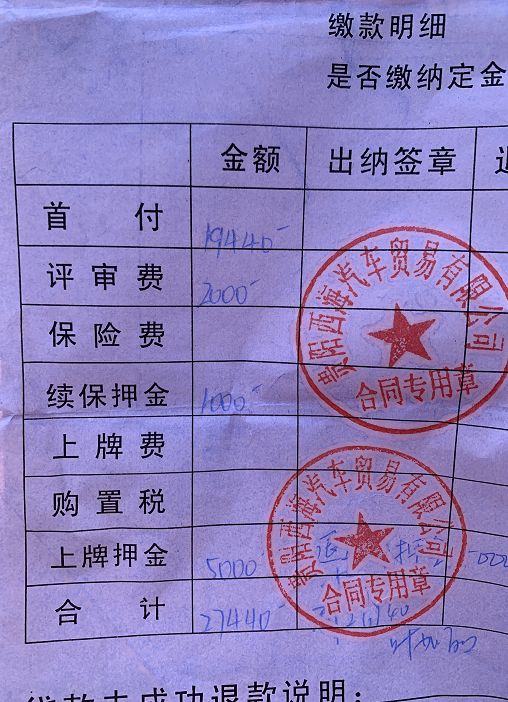 缴款明细
是否缴纳定金
金额 出纳签章
首 付 19440-
评审费 2000-
保险费
续保押金 1000-
上牌费
购置税
上牌押金 5000-
合 计 27440-
贵阳西海汽车贸易有限公司
合同专用章
贵阳西海汽车贸易有限公司
合同专用章
贷款未成功退款说明：